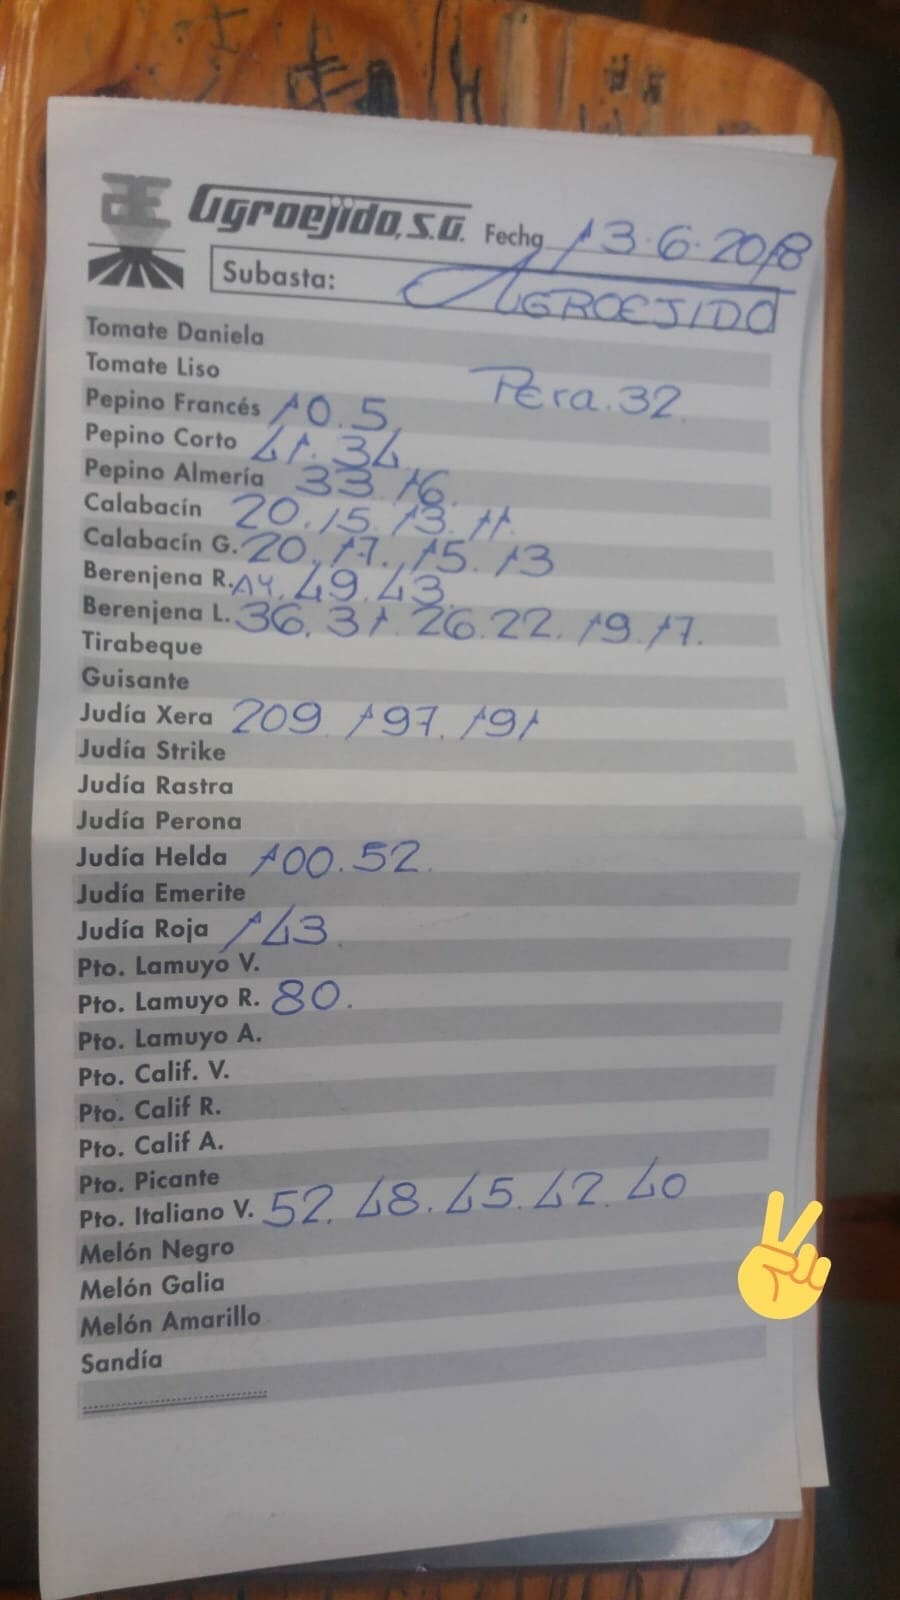 Agroejido, S.A. Fecha 13.6.2018
Subasta: AGROEJIDO
Tomate Daniela
Tomate Liso Pera.32
Pepino Francés 10.5
Pepino Corto 41.34
Pepino Almería 33.16.
Calabacín 20.15.13.11.
Calabacín G. 20.17.15.13
Berenjena R. 49.43
Berenjena L. 36.31.26.22.19.17.
Tirabeque
Guisante
Judía Xera 209.197.191
Judía Strike
Judía Rastra
Judía Perona
Judía Helda 100.52.
Judía Emerite
Judía Roja 143.
Pto. Lamuyo V.
Pto. Lamuyo R. 80.
Pto. Lamuyo A.
Pto. Calif. V.
Pto. Calif R.
Pto. Calif A.
Pto. Picante
Pto. Italiano V. 52.48.45.42.40
Melón Negro
Melón Galia
Melón Amarillo
Sandía